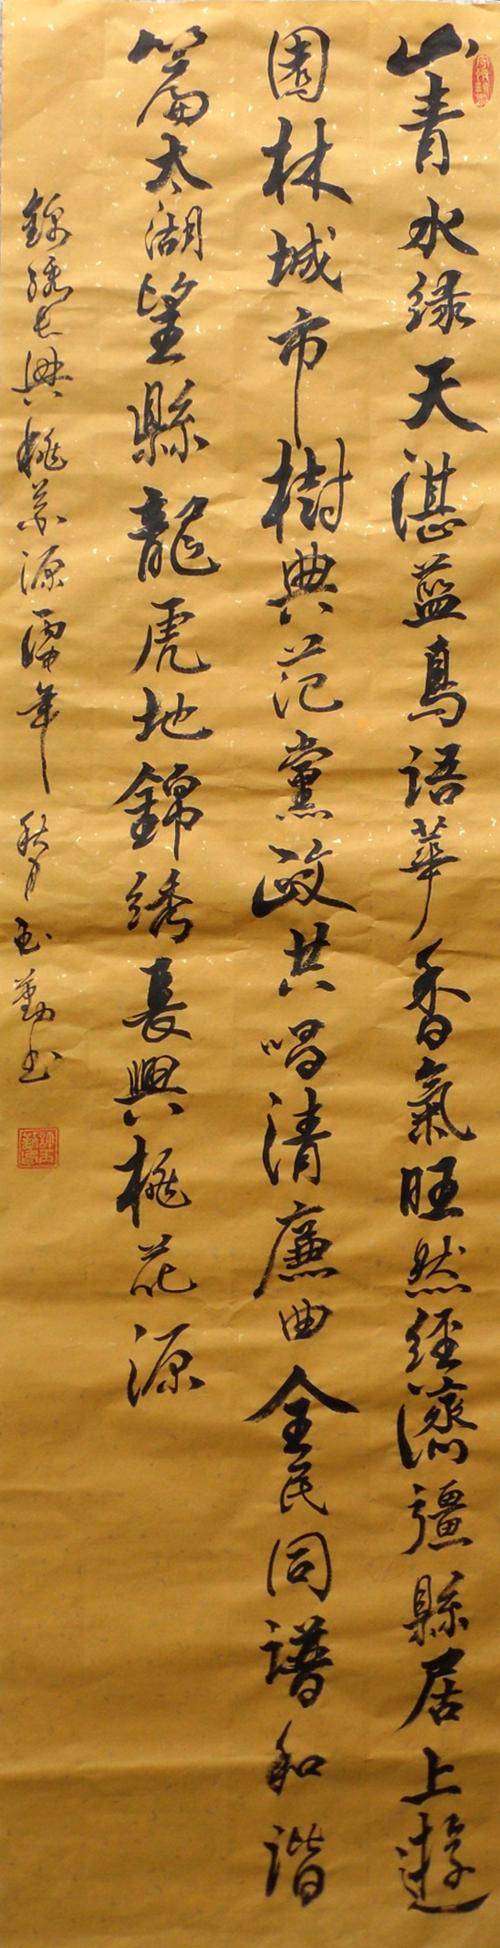 山青水绿天湛蓝鳥语華香氣旺然经濟彊縣居上遊
園林城市樹典范黨政共唱清廉曲全民同谱和谐
篇太湖望縣龍虎地錦绣長興桃花源
錦绣长興桃花源 年秋月玉勤书